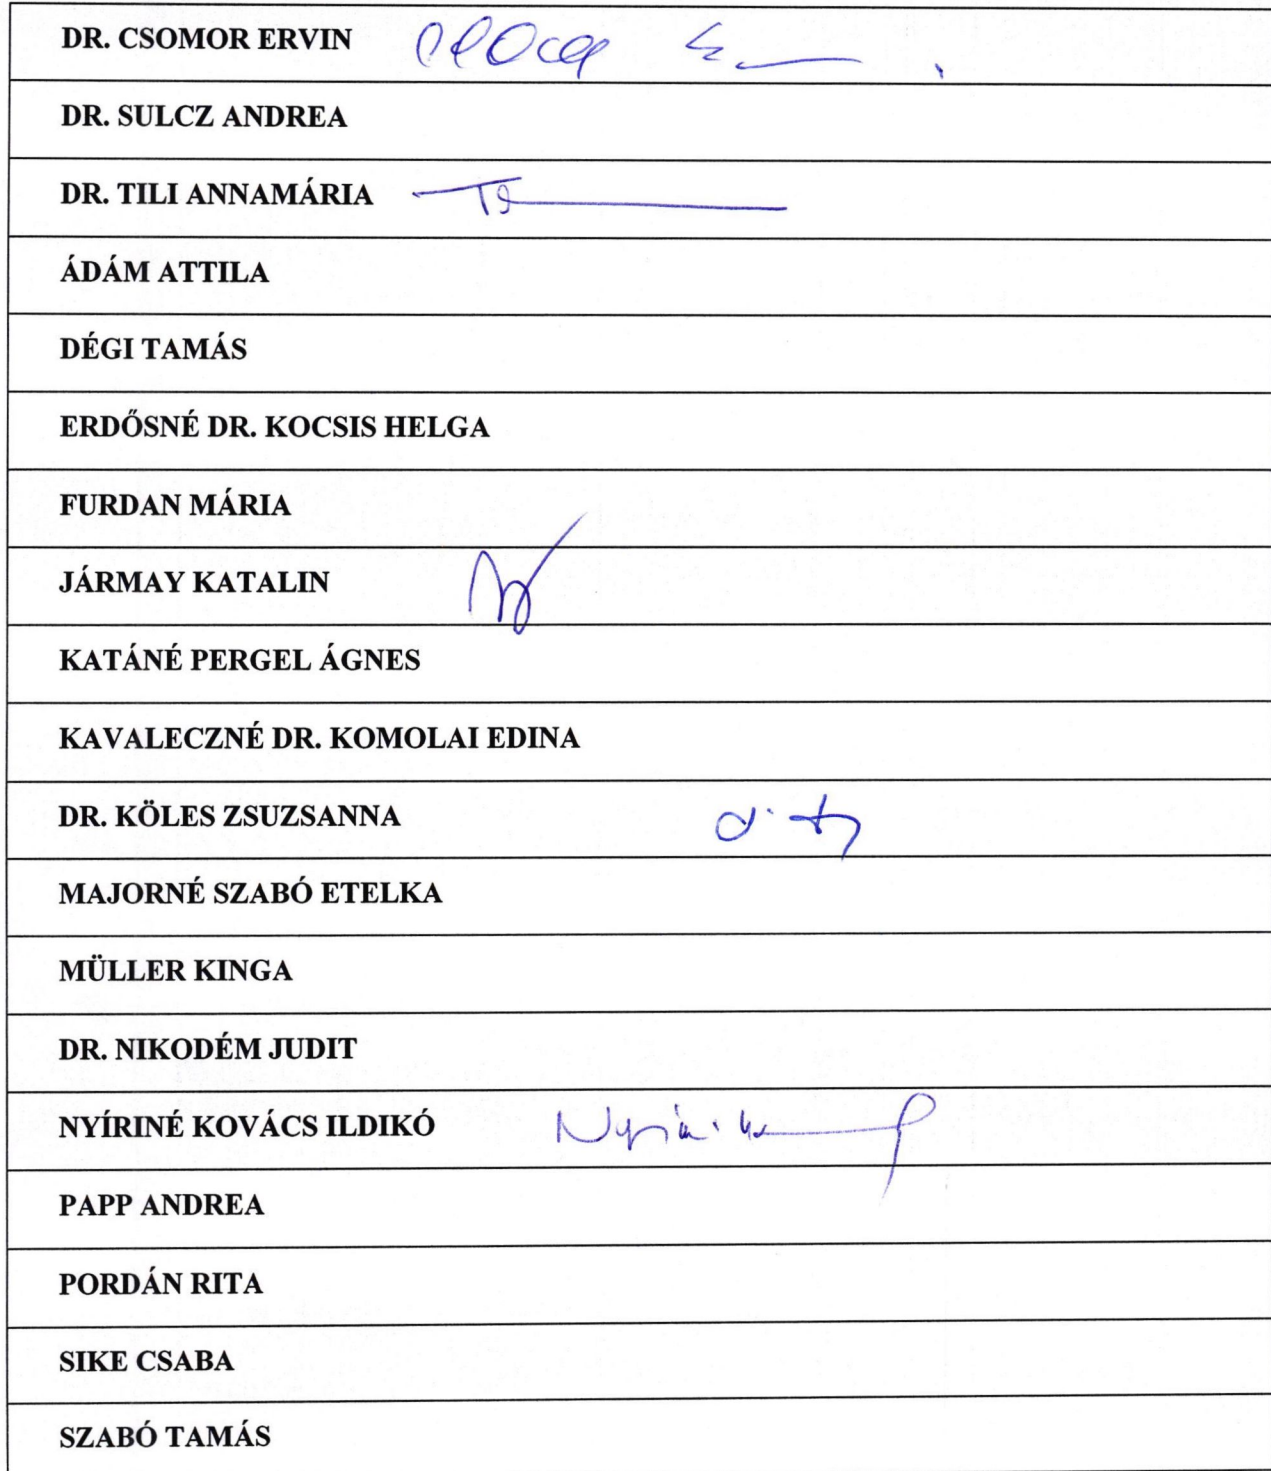 DR. CSOMOR ERVIN
DR. SULCZ ANDREA
DR. TILI ANNAMÁRIA
ÁDÁM ATTILA
DÉGI TAMÁS
ERDŐSNÉ DR. KOCSIS HELGA
FURDAN MÁRIA
JÁRMAY KATALIN
KATÁNÉ PERGEL ÁGNES
KAVALECZNÉ DR. KOMOLAI EDINA
DR. KÖLES ZSUZSANNA
MAJORNÉ SZABÓ ETELKA
MÜLLER KINGA
DR. NIKODÉM JUDIT
NYÍRINÉ KOVÁCS ILDIKÓ
PAPP ANDREA
PORDÁN RITA
SIKE CSABA
SZABÓ TAMÁS